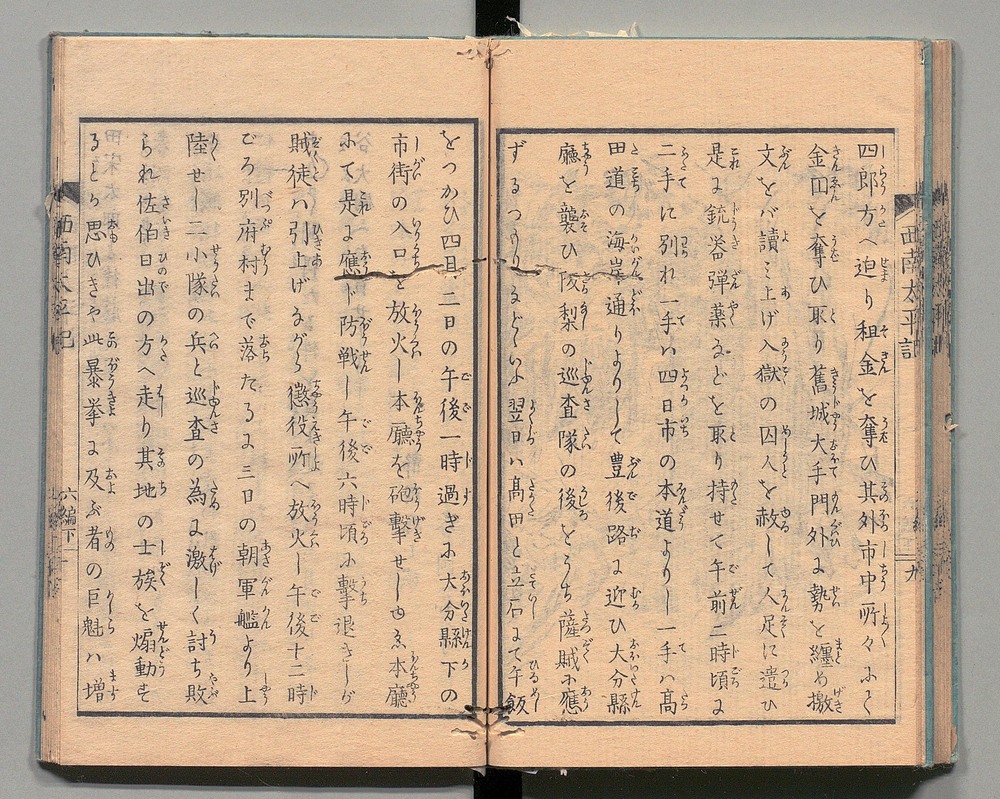 四郎方へ迫り租金を奪ひ其外市中所々ふて
金円を奪ひ取り舊城大手門外に勢を纏め檄
文をバ讀ミ上げ入獄の囚人を赦して人足に遣ひ
是に銃器弾薬などを取り持せて午前二時頃に
二手に別れ一手ハ四日市の本道よりし一手ハ髙
田道の海岸通りよりして豊後路に迎ひ大分縣
廳を襲ひ阪梨の巡査隊の後をうち薩賊ふ應
ずるつもりなどといふ翌日ハ髙田と立石にて午飯
をつかひ四月二日の午後一時過ぎふ大分縣下の
市街の入口を放火し本廳を砲撃せしゆゑ本廳
ふて是に應ド防戦し午後六時頃ふ撃退きしが
賊徒ハ引上げながら懲役所へ放火し午後十二時
ごろ別府村まで落たるに三日の朝軍艦より上
陸せし二小隊の兵と巡査の為に激しく討ち敗
られ佐伯日出の方へ走り其地の士族を煽動せ
るとか思ひきや此暴挙に及ぶ者の巨魁ハ増
西南太平記
九
西南太平記
六編下